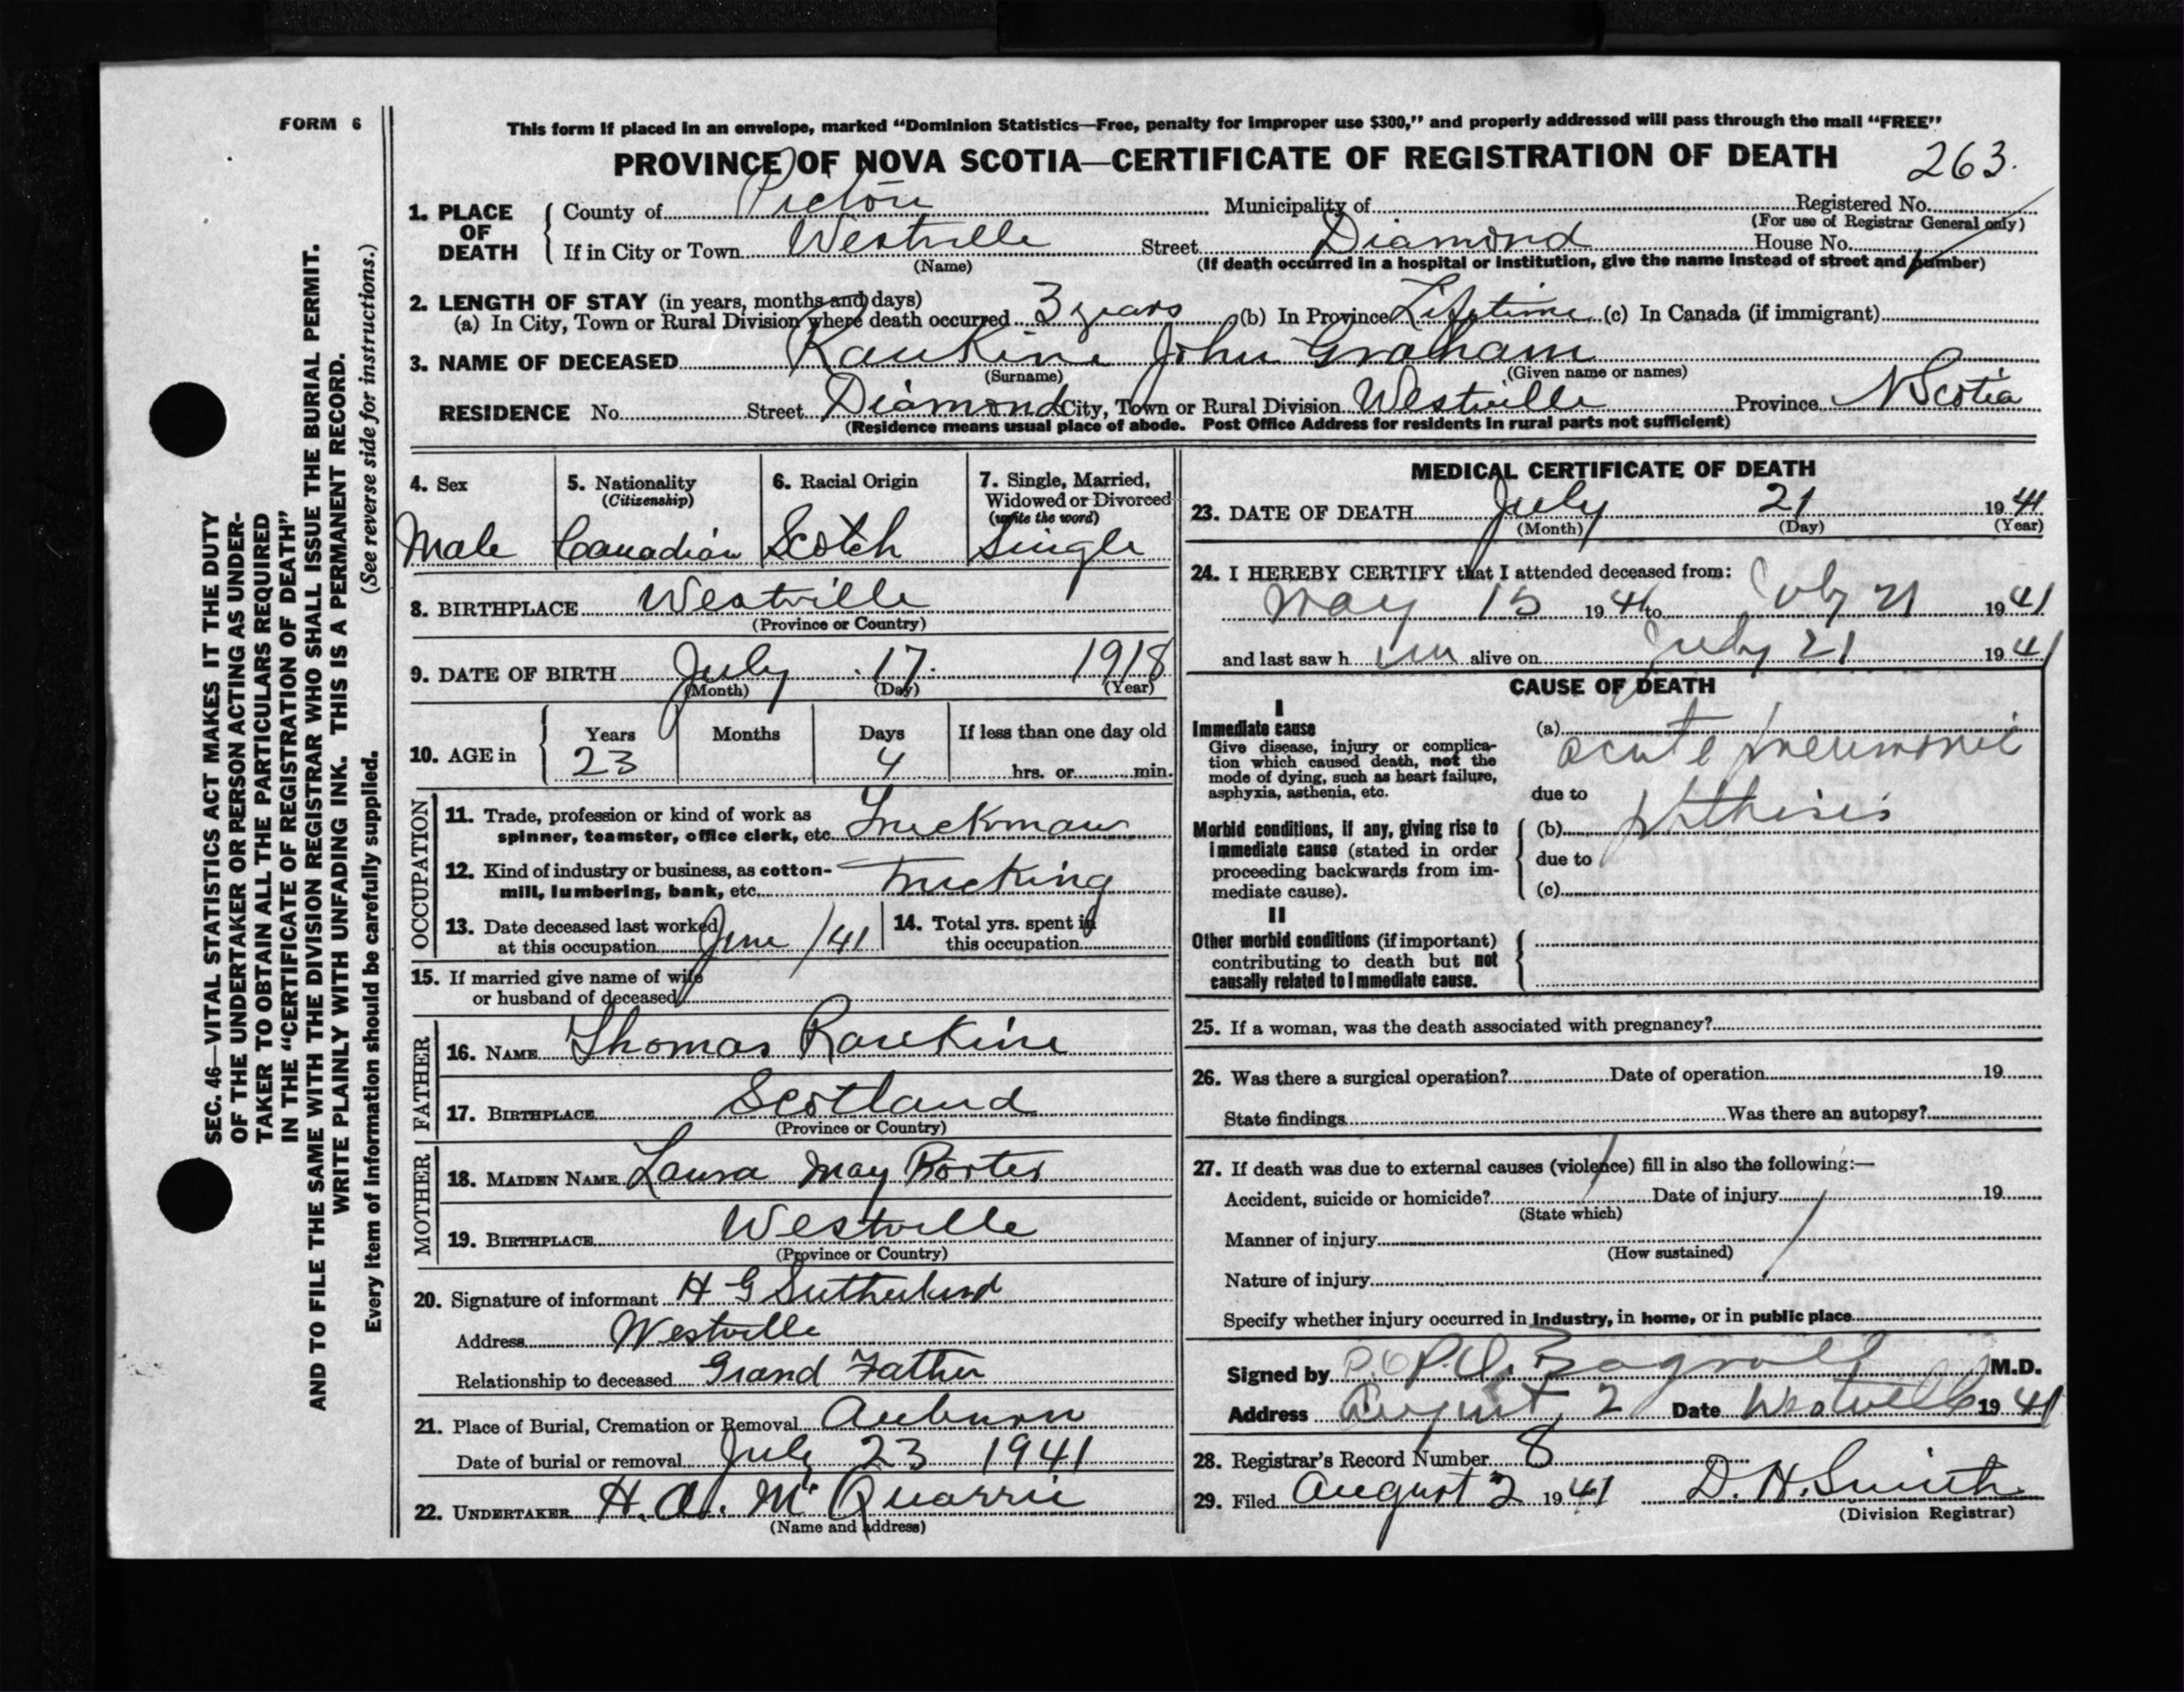 FORM 6
This form if placed in an envelope, marked “Dominion Statistics—Free, penalty for improper use $300,” and properly addressed will pass through the mail “FREE”
PROVINCE OF NOVA SCOTIA—CERTIFICATE OF REGISTRATION OF DEATH 263.
1. PLACE OF DEATH
County of Pictou Municipality of Registered No.
(For use of Registrar General only)
If in City or Town Westville Street Diamond House No.
(Name) (If death occurred in a hospital or institution, give the name instead of street and number)
2. LENGTH OF STAY (in years, months and days)
(a) In City, Town or Rural Division where death occurred 3 years (b) In Province Lifetime (c) In Canada (if immigrant)
3. NAME OF DECEASED Rankine John Graham
(Surname) (Given name or names)
RESIDENCE No. Street Diamond City, Town or Rural Division Westville Province N Scotia
(Residence means usual place of abode. Post Office Address for residents in rural parts not sufficient)
4. Sex
Male
5. Nationality
(Citizenship)
Canadian
6. Racial Origin
Scotch
7. Single, Married,
Widowed or Divorced
(write the word)
Single
8. BIRTHPLACE Westville
(Province or Country)
9. DATE OF BIRTH July 17 1918
(Month) (Day) (Year)
10. AGE in
Years Months Days If less than one day old
23 4 hrs. or min.
OCCUPATION
11. Trade, profession or kind of work as
spinner, teamster, office clerk, etc. Truckman
12. Kind of industry or business, as cotton-
mill, lumbering, bank, etc. Trucking
13. Date deceased last worked
at this occupation June /41
14. Total yrs. spent in
this occupation
15. If married give name of wife
or husband of deceased
FATHER
16. NAME Thomas Rankine
17. BIRTHPLACE Scotland
(Province or Country)
MOTHER
18. MAIDEN NAME Laura May Porter
19. BIRTHPLACE Westville
(Province or Country)
20. Signature of informant H G Sutherland
Address Westville
Relationship to deceased Grand Father
21. Place of Burial, Cremation or Removal Auburn
Date of burial or removal July 23 1941
22. UNDERTAKER H. A. Mc Quarrie
(Name and address)
MEDICAL CERTIFICATE OF DEATH
23. DATE OF DEATH July 21 1941
(Month) (Day) (Year)
24. I HEREBY CERTIFY that I attended deceased from:
May 15 1941 to July 21 1941
and last saw h im alive on July 21 1941
CAUSE OF DEATH
I
Immediate cause
Give disease, injury or complica-
tion which caused death, not the
mode of dying, such as heart failure,
asphyxia, asthenia, etc.
(a) acute pneumonic
due to
Morbid conditions, if any, giving rise to
immediate cause (stated in order
proceeding backwards from im-
mediate cause).
(b) phthisis
due to
(c)
II
Other morbid conditions (if important)
contributing to death but not
causally related to immediate cause.
25. If a woman, was the death associated with pregnancy?
26. Was there a surgical operation? Date of operation 19
State findings Was there an autopsy?
27. If death was due to external causes (violence) fill in also the following:—
Accident, suicide or homicide? Date of injury 19
(State which)
Manner of injury
(How sustained)
Nature of injury
Specify whether injury occurred in industry, in home, or in public place
Signed by P. O. Bagnall M.D.
Address August 2 Date Westville 1941
28. Registrar's Record Number 8
29. Filed August 2 1941 D. H. Smith
(Division Registrar)
SEC. 46—VITAL STATISTICS ACT MAKES IT THE DUTY
OF THE UNDERTAKER OR PERSON ACTING AS UNDER-
TAKER TO OBTAIN ALL THE PARTICULARS REQUIRED
IN THE “CERTIFICATE OF REGISTRATION OF DEATH”
AND TO FILE THE SAME WITH THE DIVISION REGISTRAR WHO SHALL ISSUE THE BURIAL PERMIT.
WRITE PLAINLY WITH UNFADING INK. THIS IS A PERMANENT RECORD.
Every item of information should be carefully supplied. (See reverse side for instructions.)